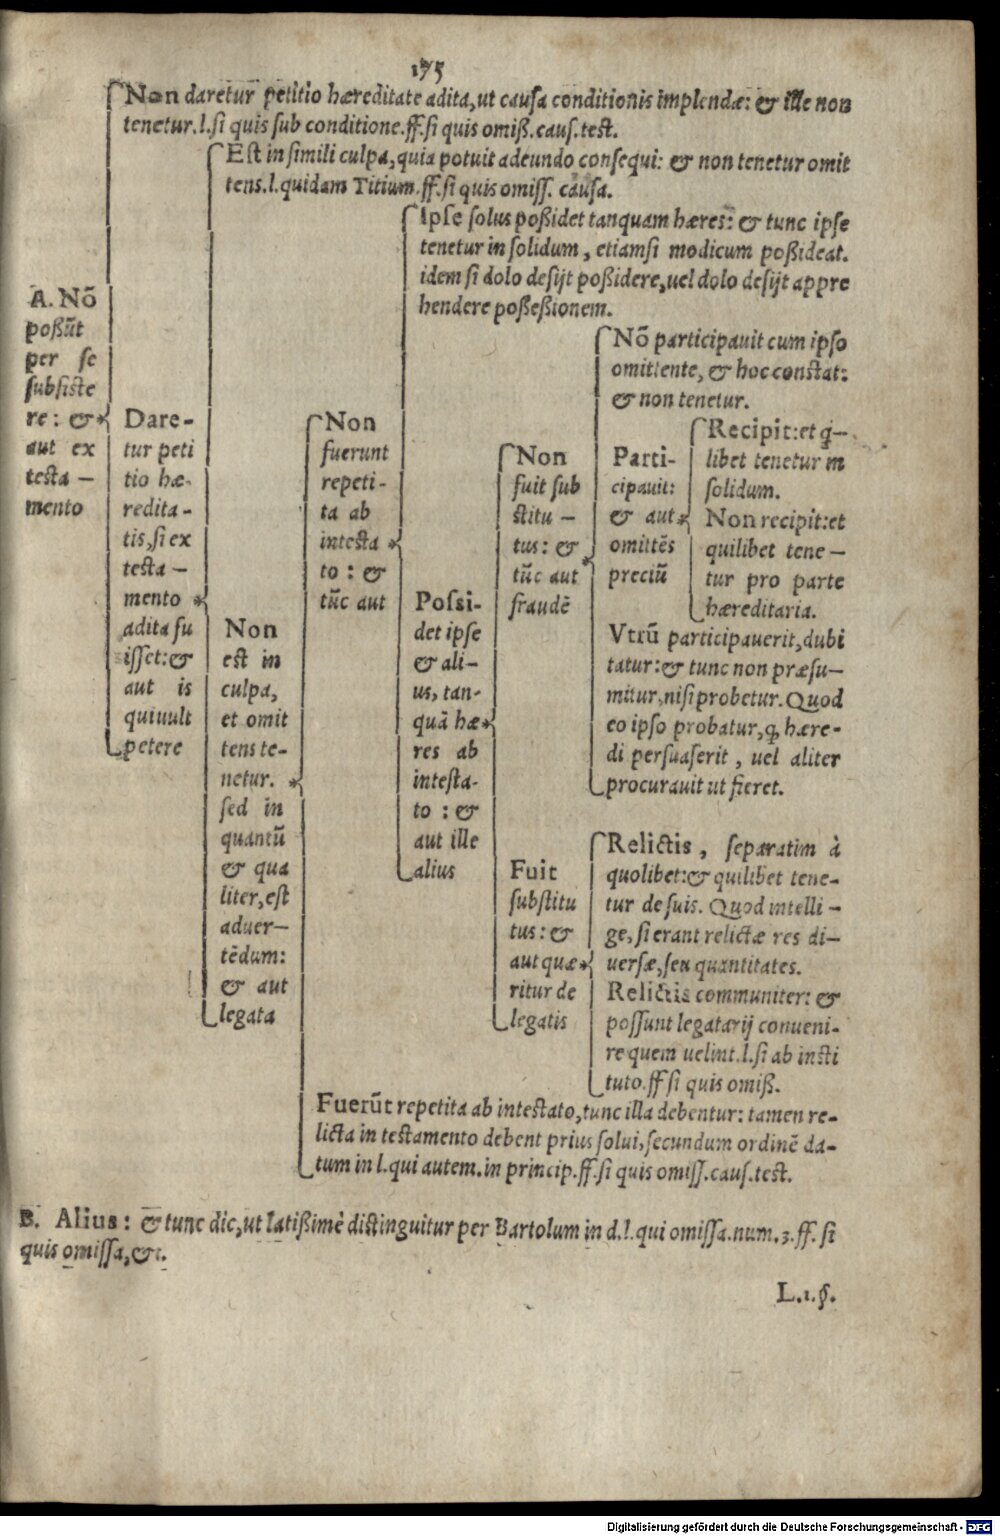 175
Non daretur petitio hæreditate adita, ut causa conditionis implendæ: & ille non
tenetur. l. si quis sub conditione. ff. si quis omiß. caus. test.
Est in simili culpa, quia potuit adeundo consequi: & non tenetur omit
tens. l. quidam Titium. ff. si quis omiss. causa.
Ipse solus poßidet tanquam hæres: & tunc ipse
tenetur in solidum, etiamsi modicum poßideat.
idem si dolo desijt poßidere, uel dolo desijt appre
hendere poßeßionem.
A. Nō
poßūt
per se
subsiste
re: &
aut ex
testa-
mento
Dare-
tur peti
tio hæ-
redita-
tis, si ex
testa-
mento
adita fu
isset: &
aut is
qui uult
petere
Non
est in
culpa,
et omit
tens te-
netur.
sed in
quantū
& qua
liter, est
aduer-
tēdum:
& aut
legata
Non
fuerunt
repeti-
ta ab
intesta
to: &
tūc aut
Possi-
det ipse
& ali-
us, tan-
quā hæ
res ab
intesta-
to: &
aut ille
alius
Non
fuit sub
stitu-
tus: &
tūc aut
fraudē
Nō participauit cum ipso
omittente, & hoc constat:
& non tenetur.
Parti-
cipauit:
& aut
omittēs
preciū
Recipit: et q-
libet tenetur in
solidum.
Non recipit: et
quilibet tene-
tur pro parte
hæreditaria.
Vtrū participauerit, dubi
tatur: & tunc non præsu-
mitur, nisi probetur. Quod
eo ipso probatur, q hære-
di persuaserit, uel aliter
procurauit ut fieret.
Fuit
substitu
tus: &
aut quæ
ritur de
legatis
Relictis, separatim à
quolibet: & quilibet tene-
tur de suis. Quod intelli-
ge, si erant relictæ res di-
uersæ, seu quantitates.
Relictis communiter: &
possunt legatarij conueni-
re quem uelint. l. si ab insti
tuto. ff si quis omiß.
Fuerūt repetita ab intestato, tunc illa debentur: tamen re-
licta in testamento debent prius solui, secundum ordinē da-
tum in l. qui autem. in princip. ff. si quis omiss. caus. test.
B. Alius: & tunc dic, ut latißimè distinguitur per Bartolum in d. l. qui omissa. num. 3. ff. si
quis omissa, &c.
L. 1. §.
Digitalisierung gefördert durch die Deutsche Forschungsgemeinschaft - DFG